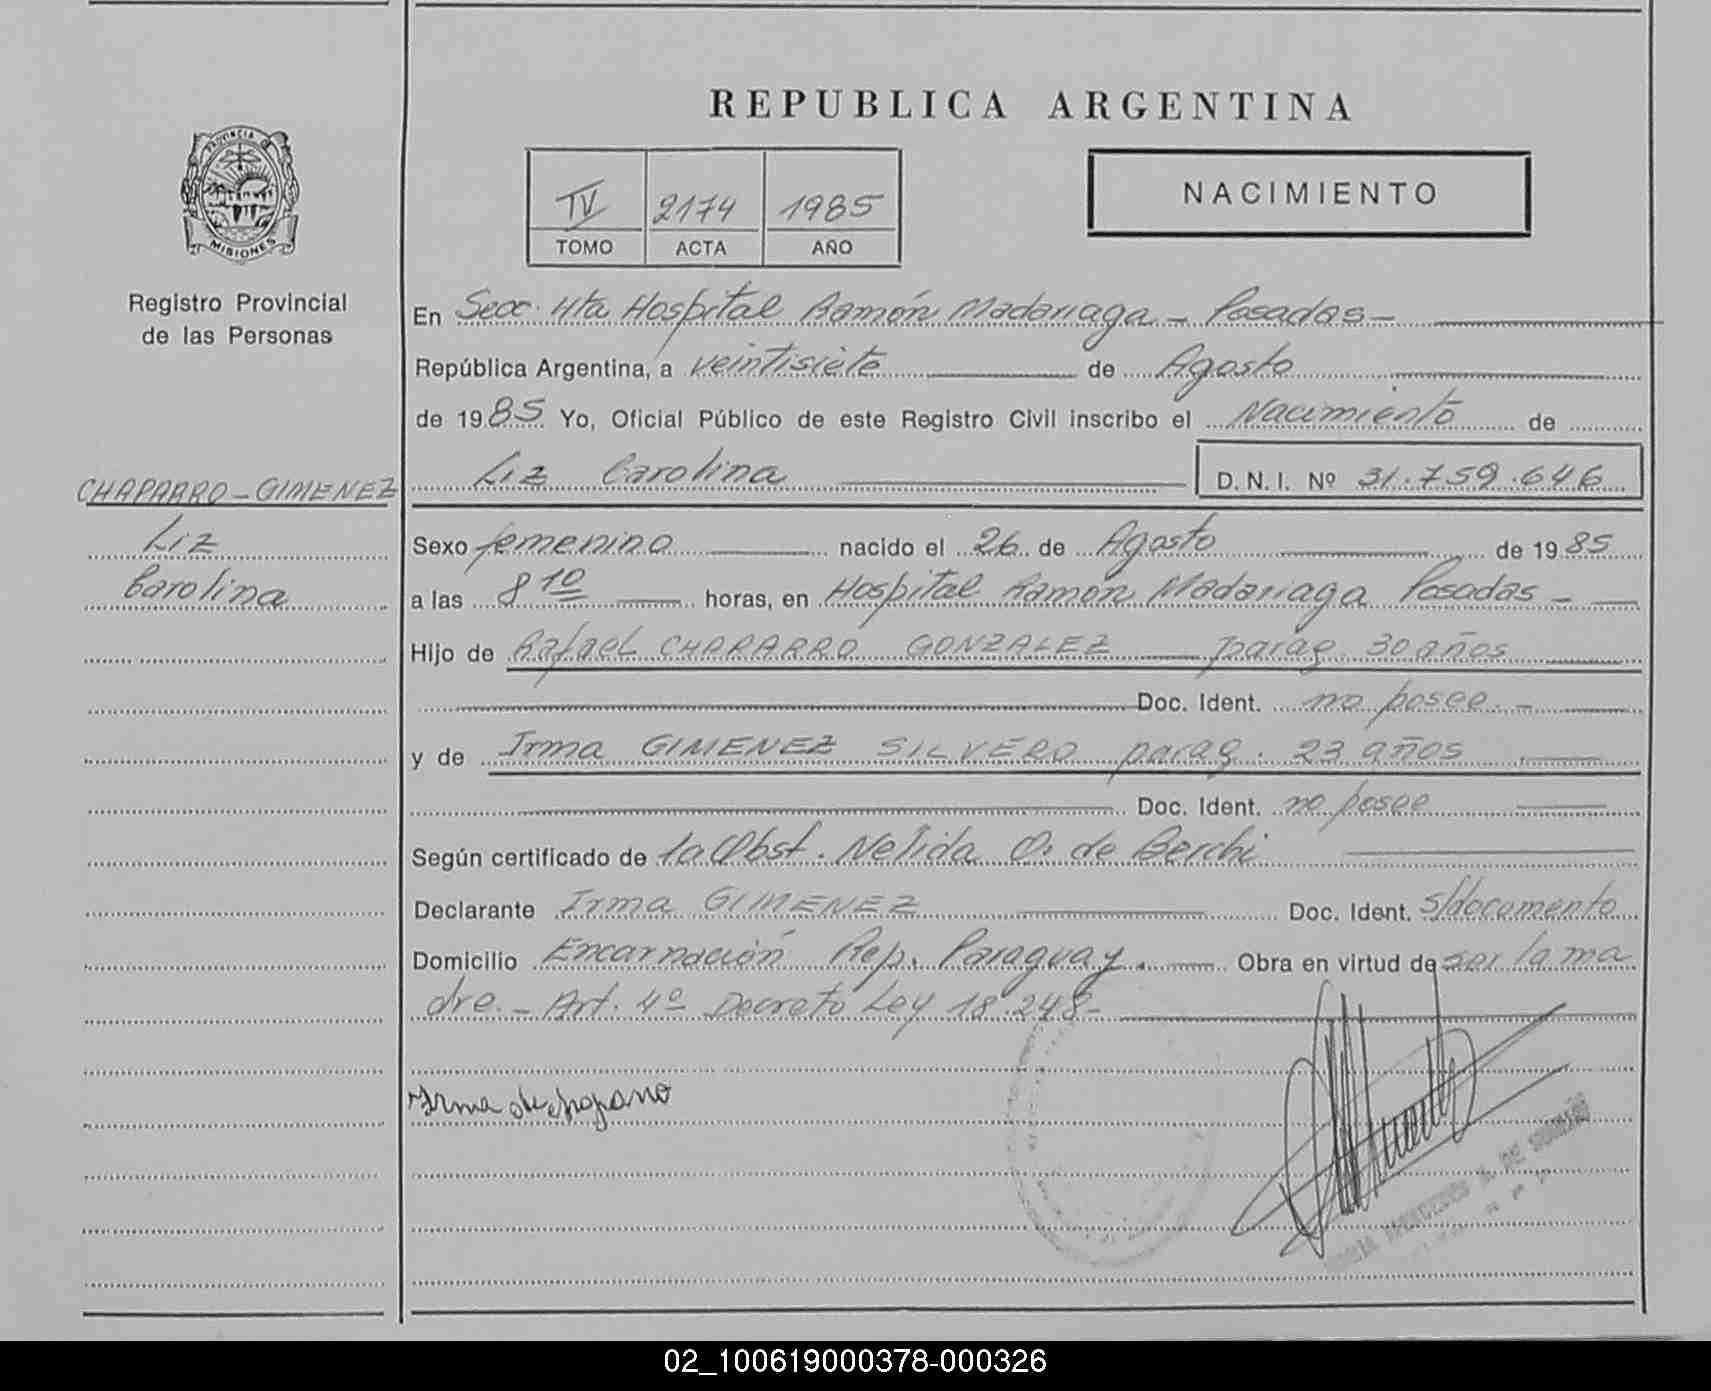 REPUBLICA ARGENTINA
PROVINCIA D
MISIONES
Registro Provincial
de las Personas
IV 2174 1985
TOMO ACTA AÑO
NACIMIENTO
En Secc. 4ta Hospital Ramón Madariaga - Posadas -
República Argentina, a veintisiete de Agosto
de 1985 Yo, Oficial Público de este Registro Civil inscribo el Nacimiento de
Liz Carolina D. N. I. Nº 31.759.646
CHAPARRO - GIMENEZ
Liz
Carolina
Sexo femenino nacido el 26 de Agosto de 1985
a las 8 10 horas, en Hospital Ramón Madariaga Posadas -
Hijo de Rafael CHAPARRO GONZALEZ parag. 30 años
Doc. Ident. no posee. -
y de Irma GIMENEZ SILVERO parag. 23 años
Doc. Ident. no posee
Según certificado de la Obst. Nélida O. de Berchi
Declarante Irma GIMENEZ Doc. Ident. s/documento
Domicilio Encarnación Rep. Paraguay. Obra en virtud de ser la ma
dre. - Art. 4º Decreto Ley 18.248 -
Irma de
02_100619000378-000326